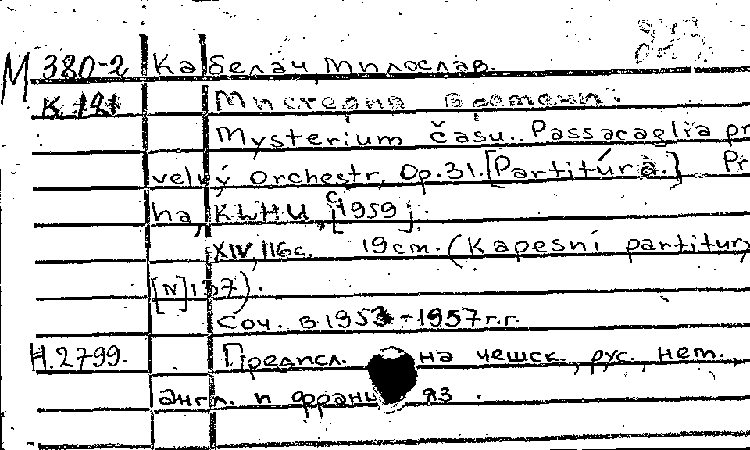 М 380-2 Кабелач, Милослав.
К 121 Мистерия времени.
Mysterium času. Passacaglia pr
velký orchestr, Op. 31. [Partitúra.] Pr
ha, KLHU, [c1959].
XIV, 116 с. 19 cm. (Kapesní partitury,
[N] 137).
Соч. в 1953-1957 г.г.
Н.2799. Предисл. на чешск., рус., нем.,
англ. и франц. яз.